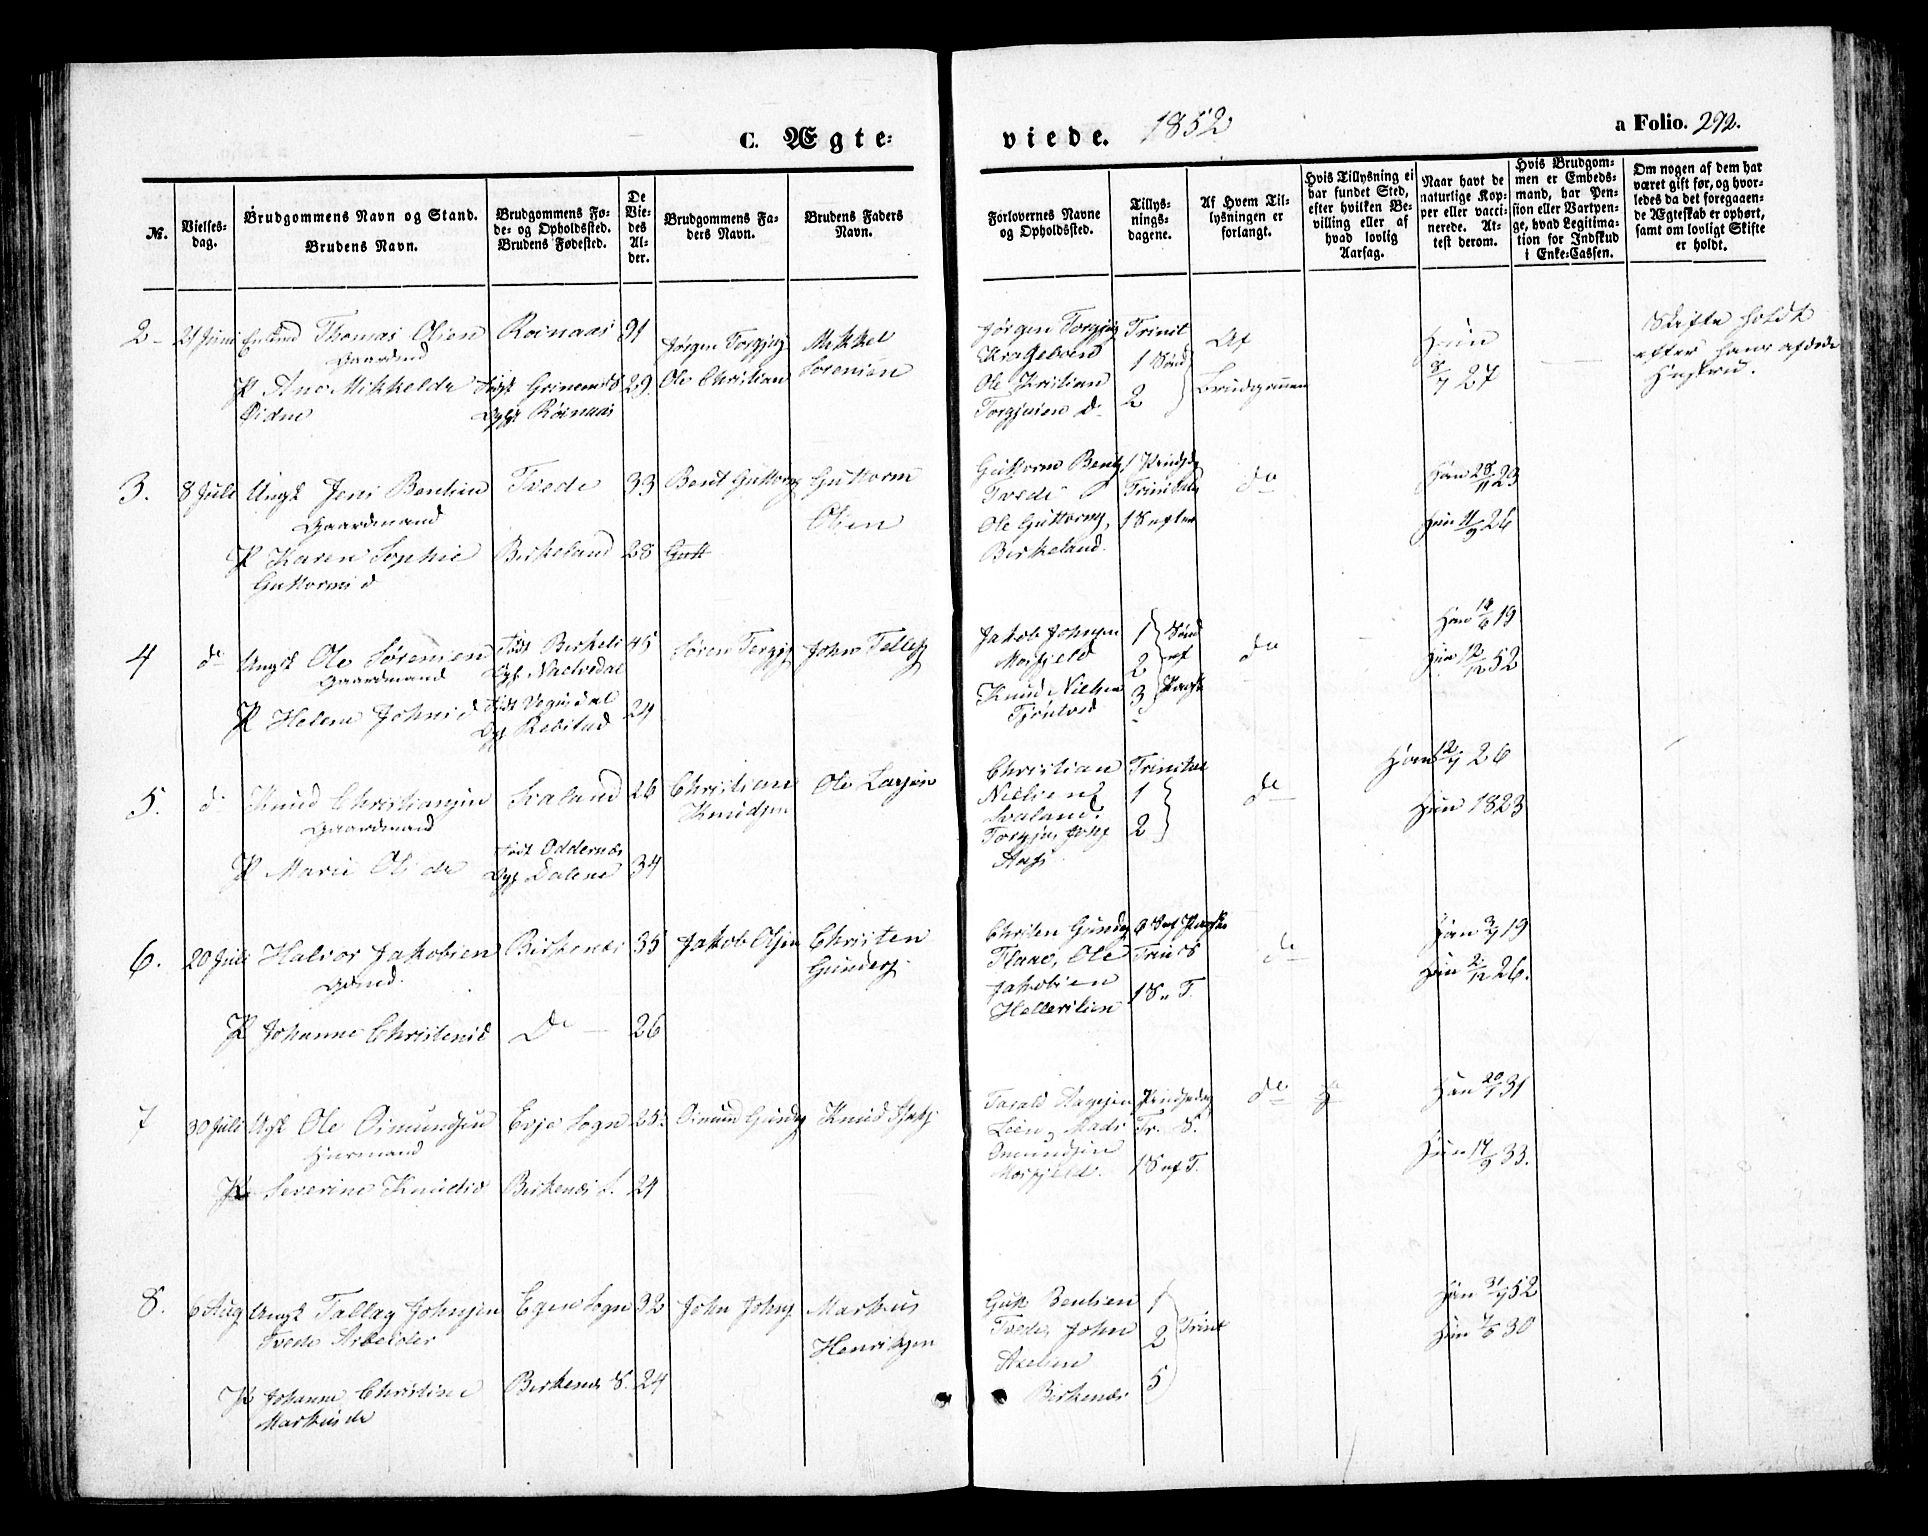 C. Ægte-
viede. 1852
a Folio. 292.
№.
Vielses-
dag.
Brudgommens Navn og Stand.
Brudens Navn.
Brudgommens Fø-
de- og Opholdssted.
Brudens Fødested.
De
Vie-
des
Al-
der.
Brudgommens Fa-
ders Navn.
Brudens Faders
Navn.
Forlovernes Navne
og Opholdssted.
Tillys-
nings-
dagene.
Af Hvem Til-
lysningen er
forlangt.
Hvis Tillysning ei
har fundet Sted,
efter hvilken Be-
villing eller af
hvad lovlig
Aarsag.
Naar havt de
naturlige Kop-
per eller vacci-
nerede. At-
test derom.
Hvis Brudgom-
men er Embeds-
mand, har Pen-
sion eller Vartpen-
ge, hvad Legitima-
tion for Indskud
i Enke-Cassen.
Om nogen af dem har
været gift før, og hvor-
ledes da det foregaaen-
de Ægteskab er ophørt,
samt om lovligt Skifte
er holdt.
2 21 Juni Enkmd Thomas Olsen
Gaardmd
P Ane Mikkelda
Roinaas
Født Grinemd S
Opg Roinaas
29
Jørgen Torgjus
Ole Christian
Mikkel
Sørensen
Jørgen Torgjus
Ole Kristian
Torgjusen d
Trinit
1 Sønd
2
Af
Brudgommen
Hun
8/7 27
Skifte holdt
efter hans afdøde
Hustru.
3. 8 Juli Ungk Jens Bentsen
Gaardmand
P Karen Sophie
Guttorms d
Tvede
Birkeland
33
28
Bent Guttorms
Gutt
Guttorm
Olsen
Guttorm Bents
Tvede
Ole Guttorms
Birkeland.
do
Han 28/11 23
Hun 11/9 26
4 do Ungk Ole Sørensen
Gaardmand
P Helene Johns d
Født Birkeli
24
45
Søren Tergjs
John Tellefs
Jakob Johnsen
Mosfjeld
Knud Nielsen
1
2
3
Sønd
ef
Paaske
do
Han 18/6 19
Hun 12/12 52
5. do Knud Christiansen
Gaardmand
P Marie Ols da
Svaland
Født Oddernæs
Opg Dalene
26
34
Christian
Knudsen
Ole Larsen
Christian
Nielsen
Svaland.
Trinitat
1
2
do
Han 12/7 26
Hun 1823
6. 20 Juli Halvor Jakobsen
Gdmd.
P Johanne Christensd
Birkenæs
Do
35
26
Jakob Olsen
Christen
Gunders.
Christen Gunders
Flaae, Ole
Jakobsen
6 S ef Paaske
Trin S
1 S e T.
do
Han 3/7 19
Hun 2/12 26.
7 30 Juli Ugk Ole Osmundsen
Huusmand
P Severine Knudsd
Evje Sogn
Birkenæs S.
25
24
Osmund Gunders
Tarald Aagesen
Lien, Mads
Osmundsen
Mosfjeld.
Tr. S.
1 S ef T.
do
Han 20/7 31
Hun 17/9 33.
8. 6 Aug Ungk Tallag Johnsen
Tvede Arbeider
P Johanne Christine
Markus da
Birkenæs S.
32
24
John Johns
Markus
Henriksen
Gutt Bentsen
Tvede, John
Axelsen
Birkenæs
1
2
5
Trinit
Han 31/7 52
Hun 7/8 30